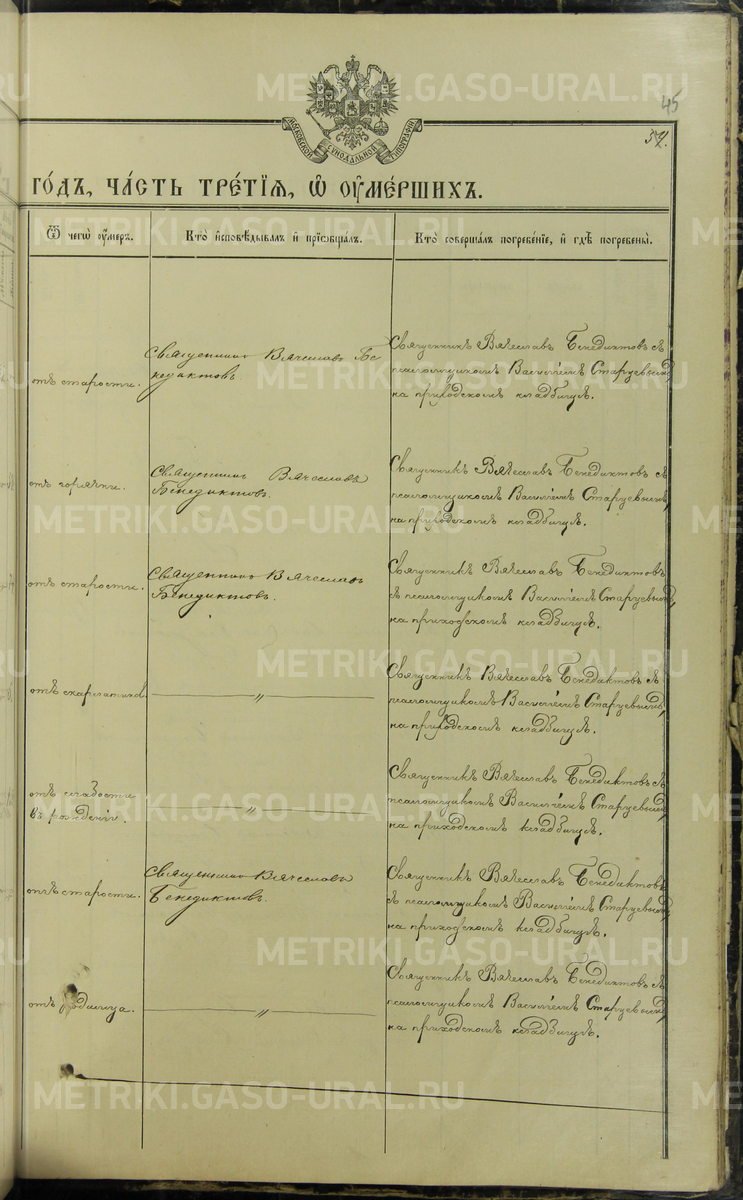 45
МОСКОВСКОЙ СѴНОДАЛЬНОЙ ТИПОГРАФІИ
ГО́ДЪ, ЧА́СТЬ ТРЕ́ТІѦ, Ѡ҆ ОУ҆МЕ́РШИХЪ.
Ѿ чегѡ̀ оу҆́меръ.
Кто̀ и҆сповѣ́дывалъ и҆ прїѡбща́лъ.
Кто̀ соверша́лъ погребе́нїе, и҆ гдѣ̀ погребены̀.
отъ старости.
Священникъ Вячеславъ Бе
недиктовъ.
Священникъ Вячеславъ Бенедиктовъ съ
псаломщикомъ Василіемъ Старцевымъ,
на приходскомъ кладбищѣ.
отъ горячки.
Священникъ Вячеславъ
Бенедиктовъ.
Священникъ Вячеславъ Бенедиктовъ съ
псаломщикомъ Василіемъ Старцевымъ,
на приходскомъ кладбищѣ.
отъ старости.
Священникъ Вячеславъ
Бенедиктовъ.
Священникъ Вячеславъ Бенедиктовъ
съ псаломщикомъ Василіемъ Старцевымъ,
на приходскомъ кладбищѣ.
отъ скарлатины
〃
Священникъ Вячеславъ Бенедиктовъ съ
псаломщикомъ Василіемъ Старцевымъ,
на приходскомъ кладбищѣ.
отъ слабости
въ рожденіи.
〃
Священникъ Вячеславъ Бенедиктовъ съ
псаломщикомъ Василіемъ Старцевымъ,
на приходскомъ кладбищѣ.
отъ старости.
Священникъ Вячеславъ
Бенедиктовъ.
Священникъ Вячеславъ Бенедиктовъ
съ псаломщикомъ Василіемъ Старцевымъ,
на приходскомъ кладбищѣ.
отъ родимца.
〃
Священникъ Вячеславъ Бенедиктовъ съ
псаломщикомъ Василіемъ Старцевымъ,
на приходскомъ кладбищѣ.
METRIKI.GASO-URAL.RU